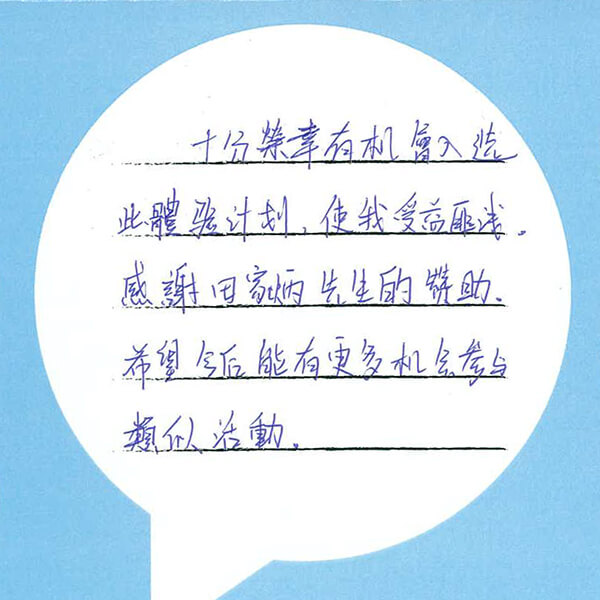 十分榮幸有机會入选
此體验计划、使我受益匪浅。
感謝田家炳先生的赞助、
希望今后能有更多机会参与
類似活動。